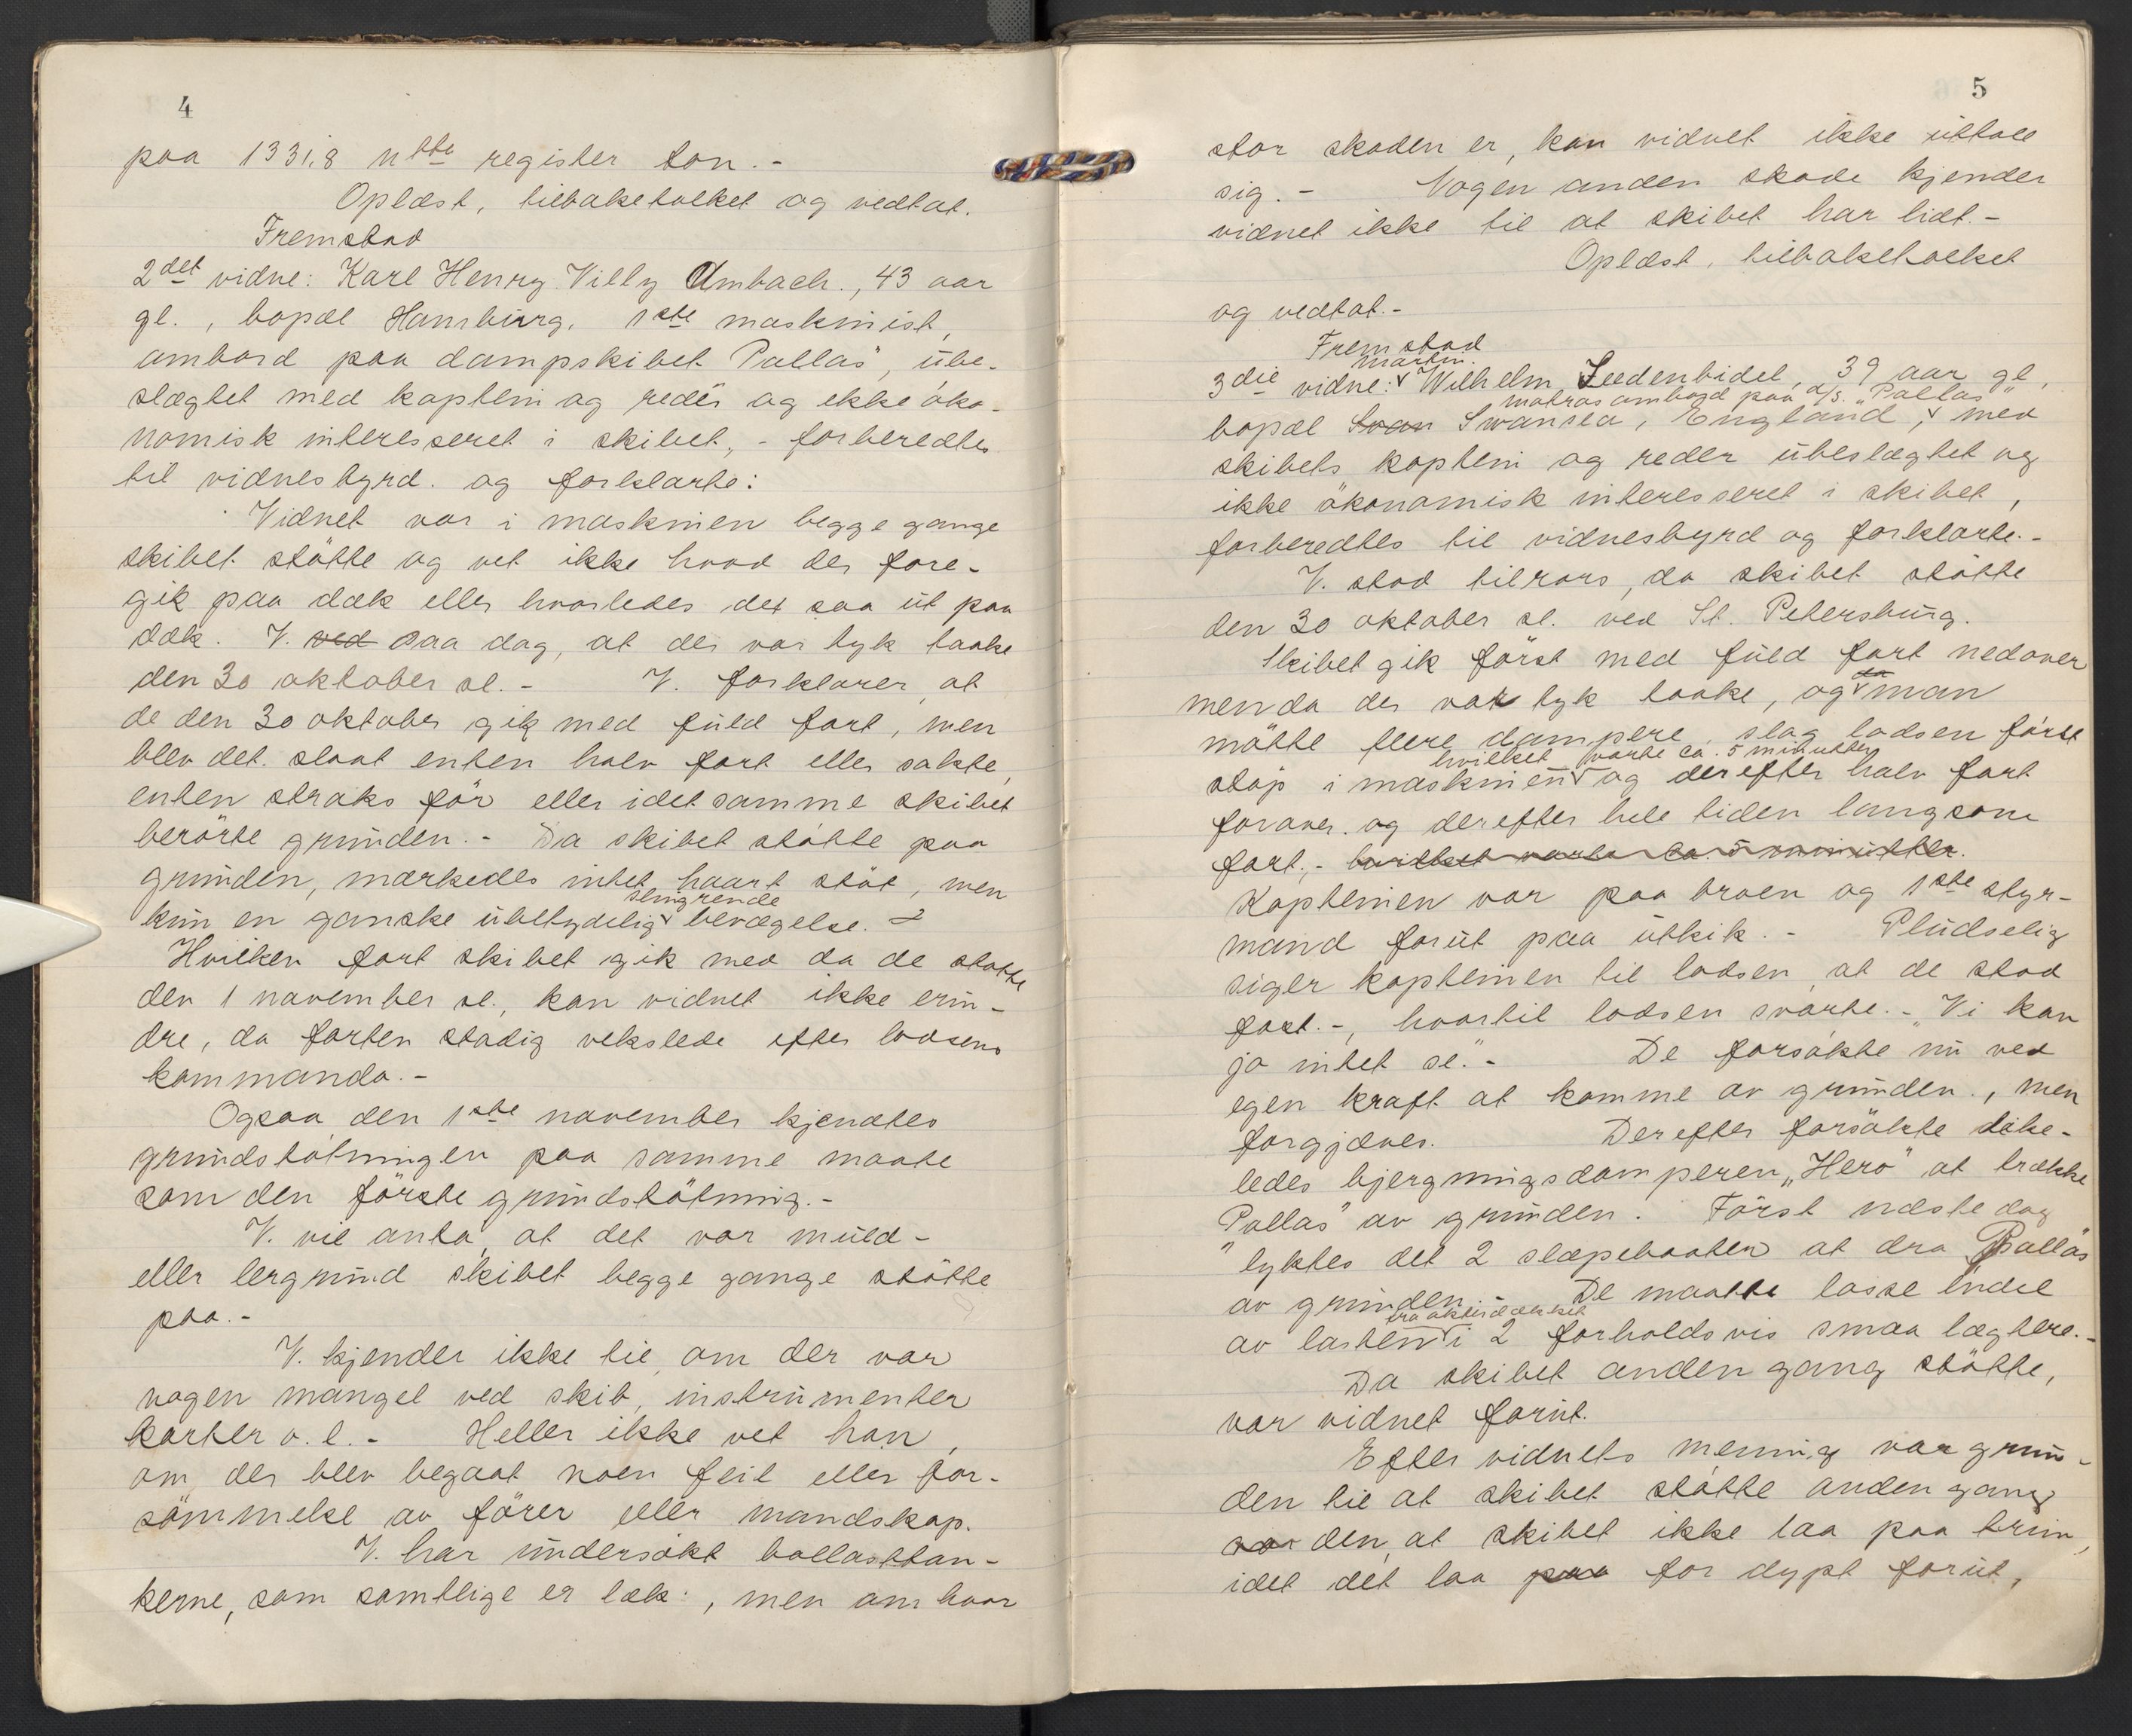 4
paa 1331,8 ntto register ton. -
Oplæst, tilbaketolket og vedtat.
Fremstod
2det vidne: Karl Henry Villy Ambach., 43 aar
gl., bopæl Hamburg, 1ste maskinist,
ombord paa dampskibet "Pallas", ube-
slægtet med kaptein og reder og ikke øko-
nomisk interesseret i skibet, - forberedtes
til vidnesbyrd. og forklarte:
Vidnet var i maskinen begge gange
skibet støtte og vet ikke hvad der fore-
gik paa dæk eller hvorledes det saa ut paa
dæk. V. ved saa dog, at der var tyk taake
den 30 oktober sl. - V. forklarer, at
de den 30 oktober gik med fuld fart, men
blev det slaat enten halv fart eller sakte,
enten straks før eller idet samme skibet
berørte grunden. - Da skibet støtte paa
grunden, merkedes intet haart støt, men
slingrende
kun en ganske ubetydelig bevægelse. -
Hvilken fart skibet gik med da de støtte
den 1 november sl., kan vidnet ikke erin-
dre, da farten stadig vekslede efter lodsens
kommando. -
Ogsaa den 1ste november kjendtes
grundstøtningen paa samme maate
som den første grundstøtning. -
V. vil anta, at det var muld-
eller lergrund skibet begge gange støtte
paa. -
V. kjender ikke til, om der var
nogen mangel ved skib, instrumenter
karter o. l. - Heller ikke vet han,
om der blev begaat noen feil eller for-
sømmelse av fører eller mandskap.
V. har undersøkt ballasttan-
kerne, som samtlige er læk, men om hvor
5
stor skaden er, kan vidnet ikke uttale
sig. - Nogen anden skade kjender
vidnet ikke til at skibet har lidt. -
Oplæst, tilbaketolket
og vedtat. -
Fremstod
Martin
3die vidne: Wilhelm Seedenbidel, 39 aar gl,
matros ombord paa d/s. "Pallas"
bopæl Svan Swansea, England, med
skibets kaptein og reder ubeslægtet og
ikke økonomisk interesseret i skibet,
forberedtes til vidnesbyrd og forklarte. -
V. stod tilrors, da skibet støtte
den 30 oktober sl. ved St. Petersburg.
Skibet gik først med fuld fart nedover
da
men da der var tyk taake, og man
møtte flere dampere, slog lodsen først
hvilket varte ca. 5 minutter
stop i maskinen og derefter halv fart
forover. og derefter hele tiden langsom
fart, - hvilket varte ca. 5 minutter.
Kapteinen var paa broen og 1ste styr-
mand forut paa utkik. - Pludselig
siger kapteinen til lodsen, at de stod
fast. -, hvortil lodsen svarte. - "Vi kan
jo intet se." - De forsøkte nu ved
egen kraft at komme av grunden, men
forgjæves. Derefter forsøkte like-
ledes bjergningsdamperen "Hero" at trække
"Pallas" av grunden. Først næste dag
lyktes det 2 slæpebaater at dra "Pallas"
av grunden. - De maatte losse endel
fra akterdækket
av lasten i 2 forholdsvis smaa lægtere. -
Da skibet anden gang støtte,
var vidnet forut.
Efter vidnets mening var grun-
den til at skibet støtte anden gang
var den, at skibet ikke laa paa trim,
idet det laa paa for dypt forut,